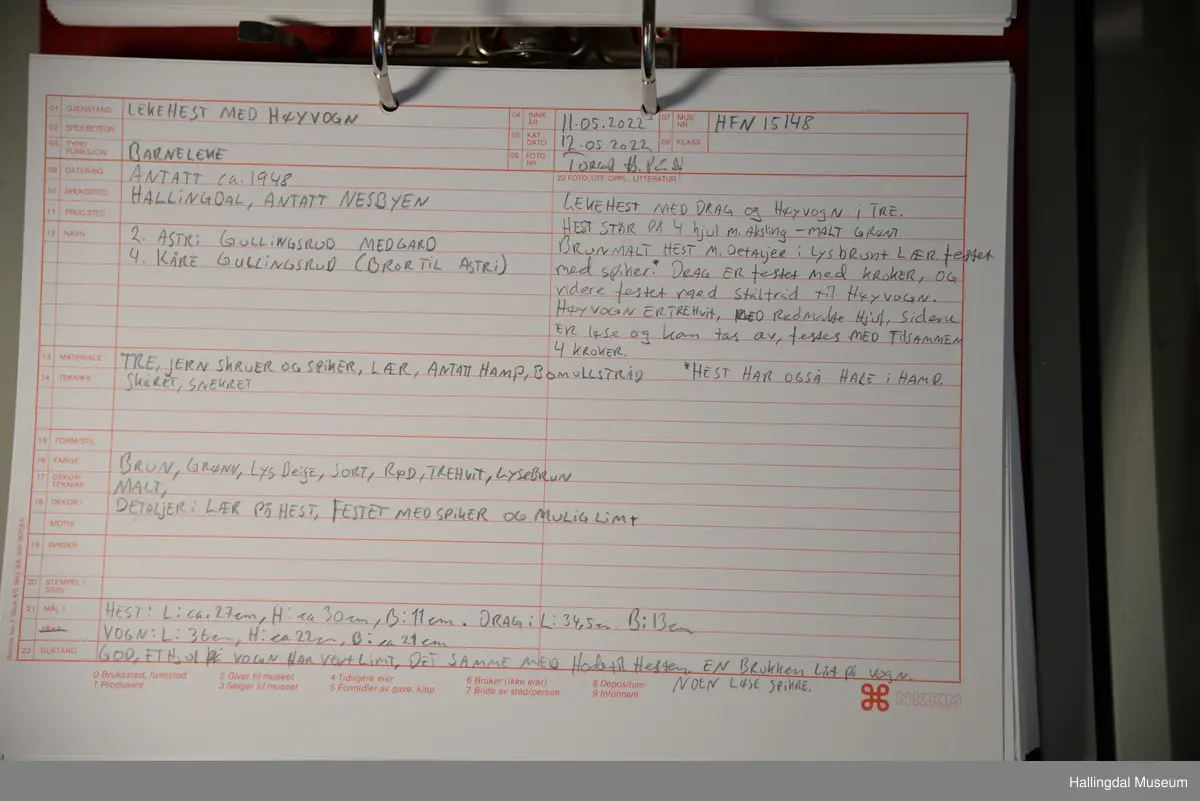 01 GJENSTAND LEKEHEST MED HØYVOGN
02 SPES.BETEGN.
03 TYPE/FUNKSJON BARNELEKE
04 INNK. ÅR 11.05.2022
05 KAT. DATO 12.05 2022
06 FOTO NR
07 MUS. NR HFN 15148
08 KLASS
09 DATERING ANTATT ca. 1948
10 BRUKSSTED HALLINGDAL, ANTATT NESBYEN
11 PROD.STED
12 NAVN 2. ASTRI GULLINGSRUD MEDGARD
4. KÅRE GULLINGSRUD (BROR TIL ASTRI)
23 FOTO, UTF. OPPL., LITTERATUR
LEKEHEST MED DRAG og HØYVOGN i TRE.
HEST STÅR PÅ 4 hjul m. Aksling – MALT GRØNT
BRUNMALT HEST M. Detaljer i Lysbrunt LÆR festet
med spiker.* DRAG ER festet med KROKER, OG
videre festet med ståltråd til HØYVOGN.
HØYVOGN ER TREHVIT, MED Rødmalte Hjul, Sidene
ER løse og kan tas av, festes MED TILSAMMEN
4 KROKER.
13 MATERIALE TRE, JERN SKRUER OG SPIKER, LÆR, ANTATT HAMP, BOMULLSTRÅD
*HEST HAR OGSÅ HALE i HAMP.
14 TEKNIKK SKÅRET, SNEKRET
15 FORM/STIL
16 FARGE BRUN, GRØNN, LYS Beige, SORT, RØD, TREHVIT, LYSEBRUN
17 DEKOR TEKNIKK MALT,
18 DEKOR / DETALJER i LÆR PÅ HEST, FESTET MED SPIKER OG MULIG LIMT
MOTIV
19 INNSKR.
20 STEMPEL / SIGN
21 MÅL / HEST: L: ca. 27cm, H: ca 30cm, B: 11cm. DRAG: L: 34,5cm B: 13cm
VEKT VOGN: L: 36cm, H: ca 22cm, B: ca 21cm
22 TILSTAND GOD, ET Hjul på VOGN HAR Vært LIMT, DET SAMME MED Hode til Hesten. EN Brukken List på vogn.
NOEN LØSE SPIKRE.
0 Brukssted, fannsted
1 Produsent
2 Giver til museet
3 Selger til museet
4 Tidligere eier
5 Formidler av gave, kjøp
6 Bruker (ikke eier)
7 Bilde av sted/person
8 Depositum
9 Informant
NKKM
Hallingdal Museum